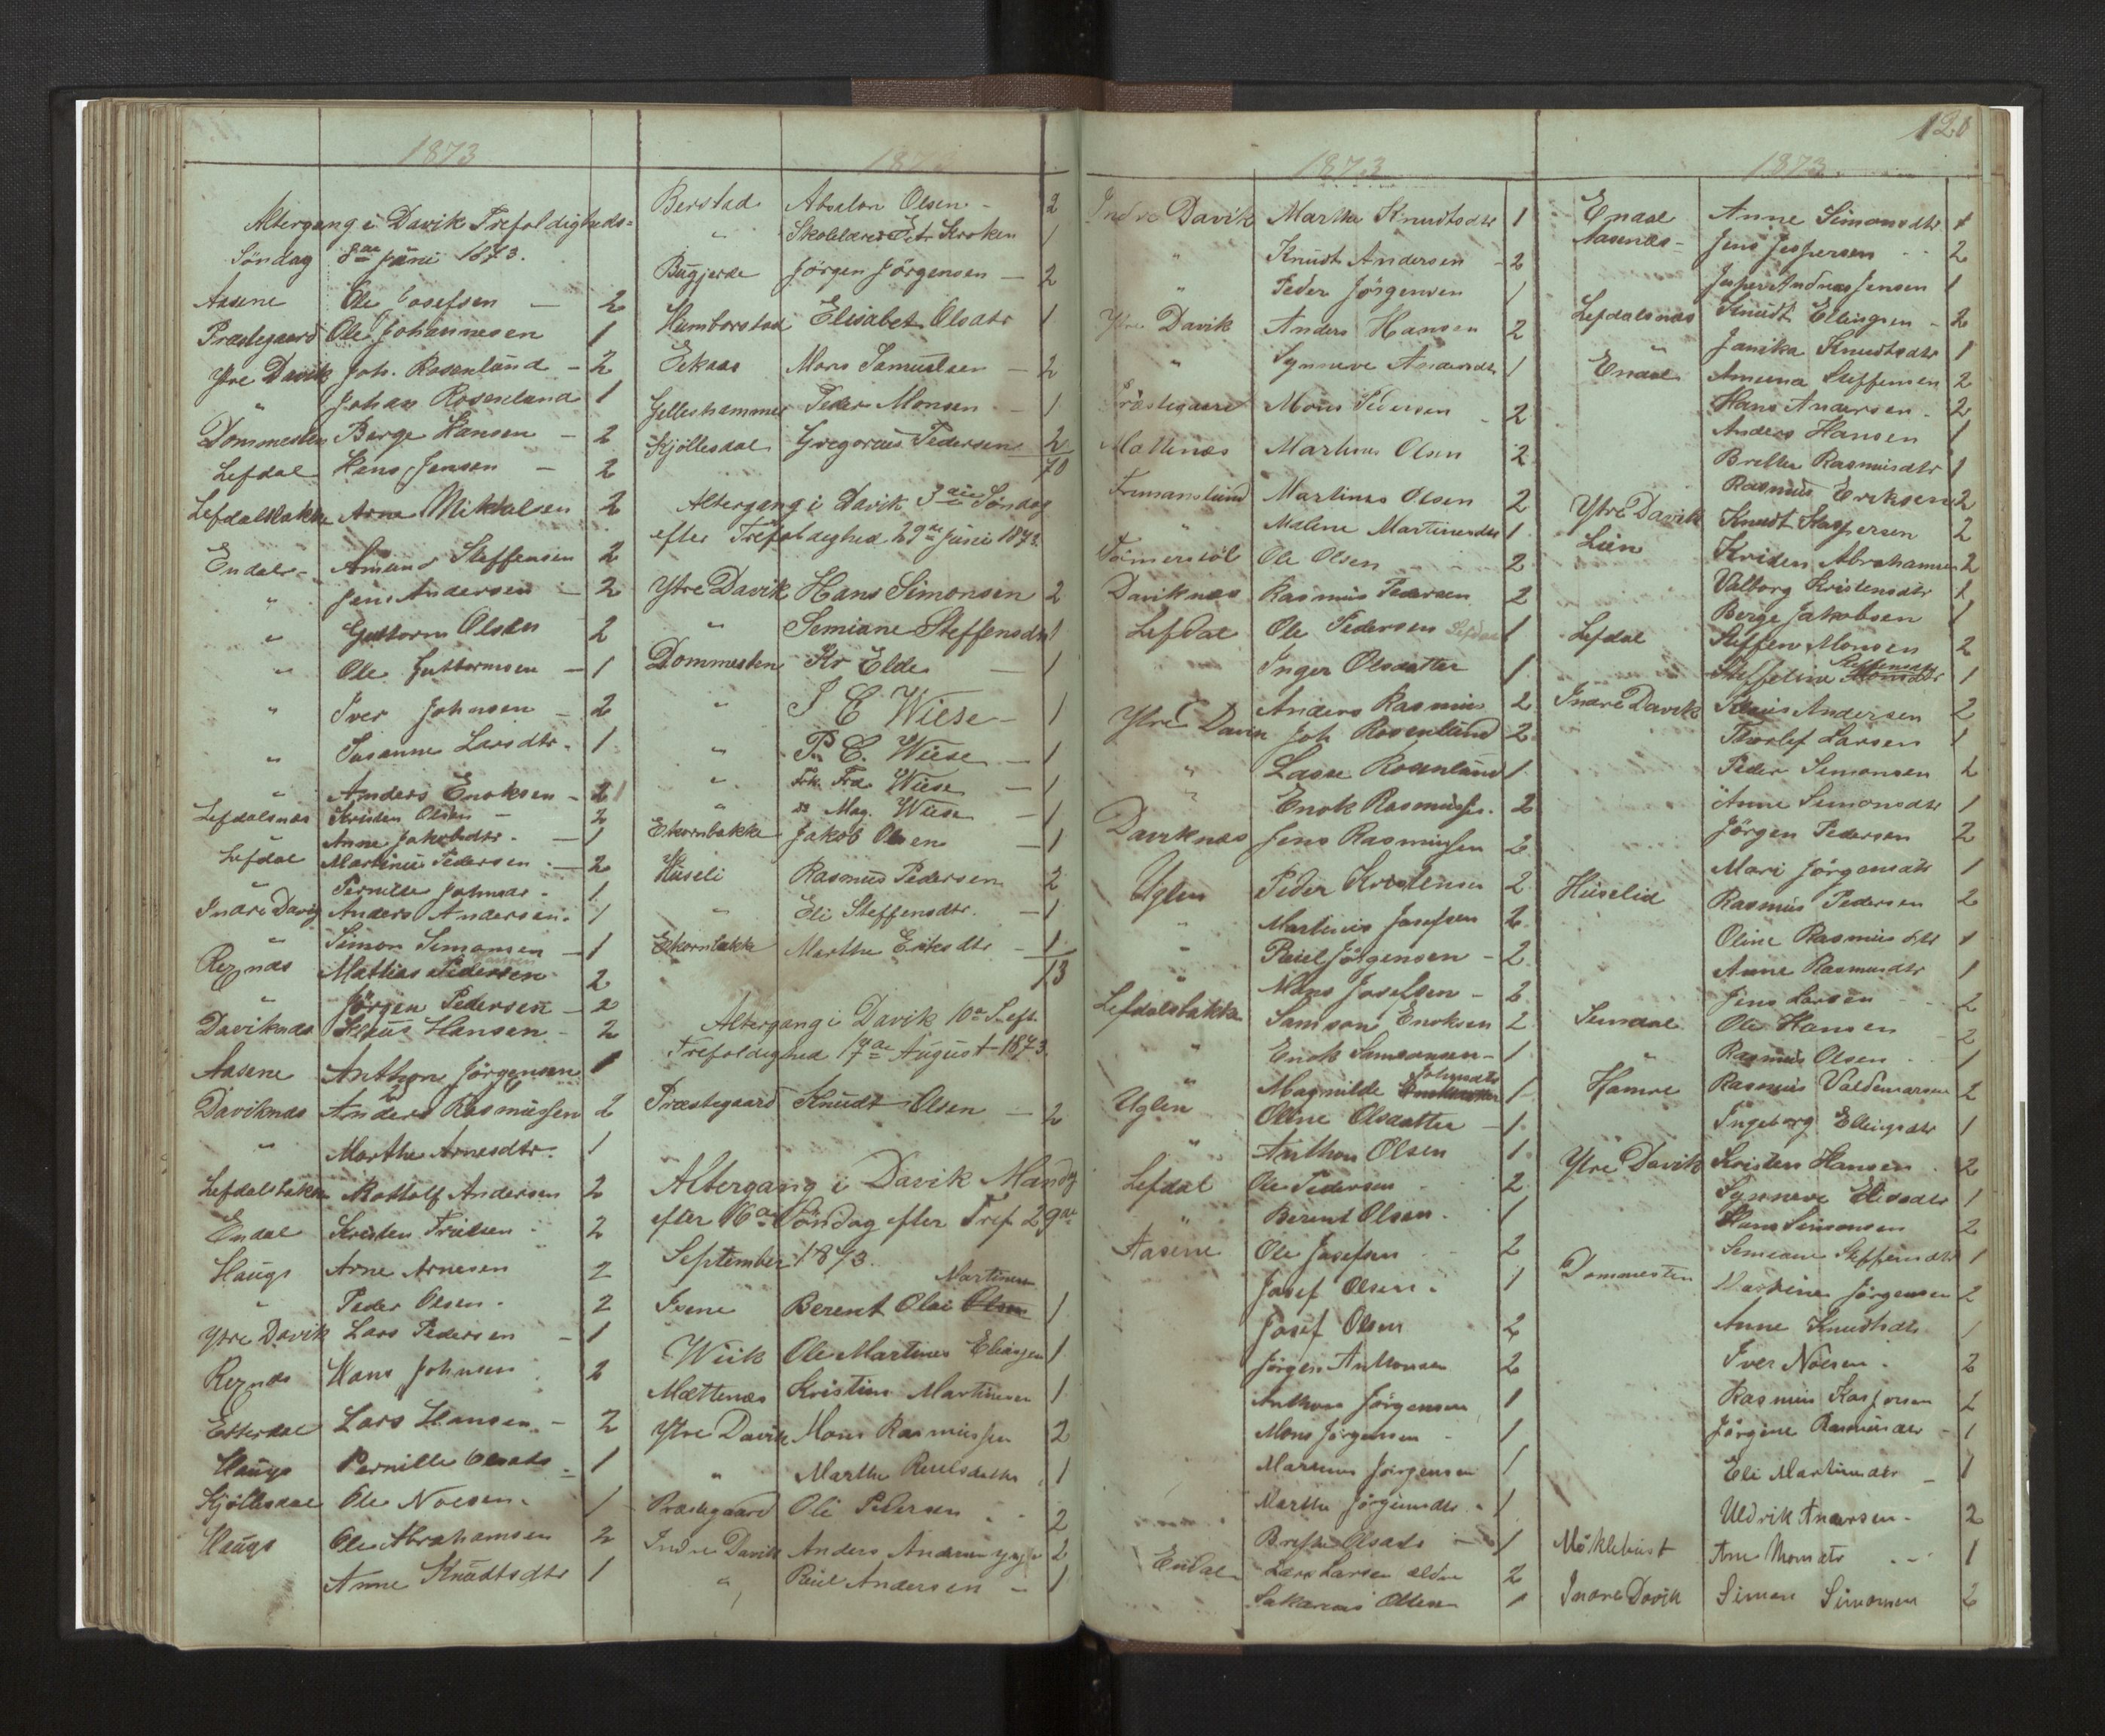 1873
Altergang i Davik Trefoldigheds-
Söndag 8de Juni 1873.
Aasene Ole Josefsen - 2
Præstegaard Ole Johannesen 1
Ytre Davik Joh. Rosenlund - 2
" Johan Rosenlund 1
Dommesten Berge Hansen - 2
Lefdal Hans Jensen - 2
Lefdalsbakke Arne Mikkalsen 2
Endal - Amund Steffensen 2
" Jens Andersen - 2
" Guttorm Olsen 2
" Ole Guttormsen - 1
" Iver Johnsen - 2
" Susanne Larsdtr. 1
" Anders Enoksen - 1
Lefdalsnæs Kristen Olsen - 2
" Anne Jakobsdtr. - 1
Lefdal Martinus Pedersen - 2
" Pernille Johnsdr. 1
Indre Davig Anders Andersen. 1
" Simon Simonsen - 1
Reznæs Mathias Pedersen 2
" Jörgen Pedersen - 2
Daviknæs Klaus Hansen - 2
Aasene Anthon Jörgensen 1
Daviknæs Anders Rasmussen 2
" Marthe Arnesdtr. 1
Lefdalsbakke Rattolf Andersen 2
Endal Kristen Truelsen 2
Haugs Arne Arnesen 2
" Peder Olsen. 2
Ytre Davik Lars Pedersen - 1
Reznæs Hans Johnsen 2
Endal Lars Hansen - 2
Haugs Pernille Olsdtr - 1
Kjöllesdal Ole Noesen. 1
Haugs Ole Abrahamsen 2
Anne Knudtsdtr 1
1873
Berstad Absalon Olsen - 2
" Skolelærer Petr Kroken 1
Bugjerde Jörgen Jörgensen - 2
Humborstad Elisabet Olsdtr 1
Eekaas Mons Samuelsen - 2
Gelleshammer Peder Monsen - 1
Kjöllesdal Gregorius Pedersen 2
70
Altergang i Davik 3die Söndag
efter Trefoldighed 29de Juni 1873.
Ytre Davik Hans Simonsen 2
" Semiane Steffensdtr 1
Dommesten Kr Elde - 1
" I C Wiese - 1
" P. C. Wiese - 1
" Frk. Fred. Wiese - 1
" do Mag. Wiese - 1
Ekornbakke Jakob Olsen - 1
Huseli Rasmus Pedersen 2
" Eli Steffensdtr. - 1
Ekornbakke Marthe Eriksdtr - 1
13
Altergang i Davik 10de S. eft.
Trefoldighed 17de August 1873.
Præstegaard Knudt Olsen - 2
Altergang i Davik Mandg
efter 16de Söndag efter Tref 29de
September 1873.
Martinsen
Isene Berent Olai Olsen 1
Wiik Ole Martinus Eliassen 1
Mættenæs Kristine Martinsen 1
Ytre Davik Mons Rasmussen 2
" Marthe Poulsdatter 1
Præstegaard Ole Pedersen 2
Indre Davik Anders Andersen yngre 2
" Poul Andersen - 1
120
1873
Indre Davik Marthe Knudtsdtr 1
" Knudt Andersen - 2
" Peder Jörgensen 1
Ytre Davik Anders Hansen 2
" Synneve Andersdtr 1
Præstegaard Mons Pedersen - 2
Mættenæs Martinus Olsen 2
Martinus Olsen 2
" Malene Martinusdtr 1
Ole Olsen 2
Daviknæs Rasmus Pedersen 2
Lefdal Ole Pedersen Lefdal 1
Inger Olsdatter 1
Anders Rasmus 2
Ytre Davik Joh Rosenlund 2
" Lasse Rosenlund 1
" Enok Rasmussen. 2
Daviknæs Jens Rasmussen 2
Uglen Peder Kristensen 2
" Martinus Josefsen 2
" Poul Jörgensen - 2
Mons Josefsen - 2
Lefdalsbakke Samson Enoksen 2
" Enok Samsonsen - 1
Johnsdtr
" Magnilde 1
Uglen Oline Olsdatter - 1
" Anthon Olsen 1
Lefdal Ole Pedersen 2
" Berent Olsen. 1
Aasene Ole Josefsen 2
Josef Olsen. 1
Josef Olsen 2
Jörgen Anthonsen 2
Anthon Jörgensen 1
Mons Jörgensen 1
Martinus Jörgensen 1
Marthe Jörgensdtr. 1
Brithe Olsdtr - 1
Endal Lars Larsen ældre 2
Sakarias Olsen 1
1873
Endal Anne Simonsdtr 1
Aasenæs - Jens Jespersen 2
Jesper Andreas Jensen 1
Lefdalsnæs Knudt Ellingsen - 2
" Janika Knudtsdtr 1
Endal Amund Steffensen 2
Hans Andersen - 2
Anders Hansen 1
Brithe Rasmusdtr 1
Rasmus Eriksen 2
Ytre Davik Knudt Kaspersen 2
Lien Kristen Abrahamsen 2
Valborg Kristensdtr 1
Berge Jakobsen 1
Lefdal Steffen Monsen 2
Steffensdtr
Steffeline Monsdtr 1
Indre Davik Klaus Andersen 2
Thorlef Larsen 1
Peder Simonsen 2
Anne Simonsdtr 1
Jörgen Pedersen 2
Mari Jörgensdtr 1
Huselid Rasmus Pedersen 2
Oline Rasmusdtr 1
Anne Rasmusdtr 1
Jens Larsen - 2
Ole Hansen - 2
" Rasmus Olsen 1
Hamre Rasmus Valdemarsen 2
Ingeborg Ellingsdtr 1
Ytre Davik Kristen Hansen 2
Synneve Eliasdtr 1
Hans Simonsen 2
Semiane Steffensdtr 1
Dommesten Martinus Jörgensen 2
Anne Knudtsdtr 1
Iver Noesen. 2
Rasmus Kaspersen 2
Jörgine Rasmusdtr - 1
Eli Martinusdtr - 1
Uldrik Andersen - 2
Möklebust Ane Monsdtr 1
Indre Davik Simon Simonsen 2